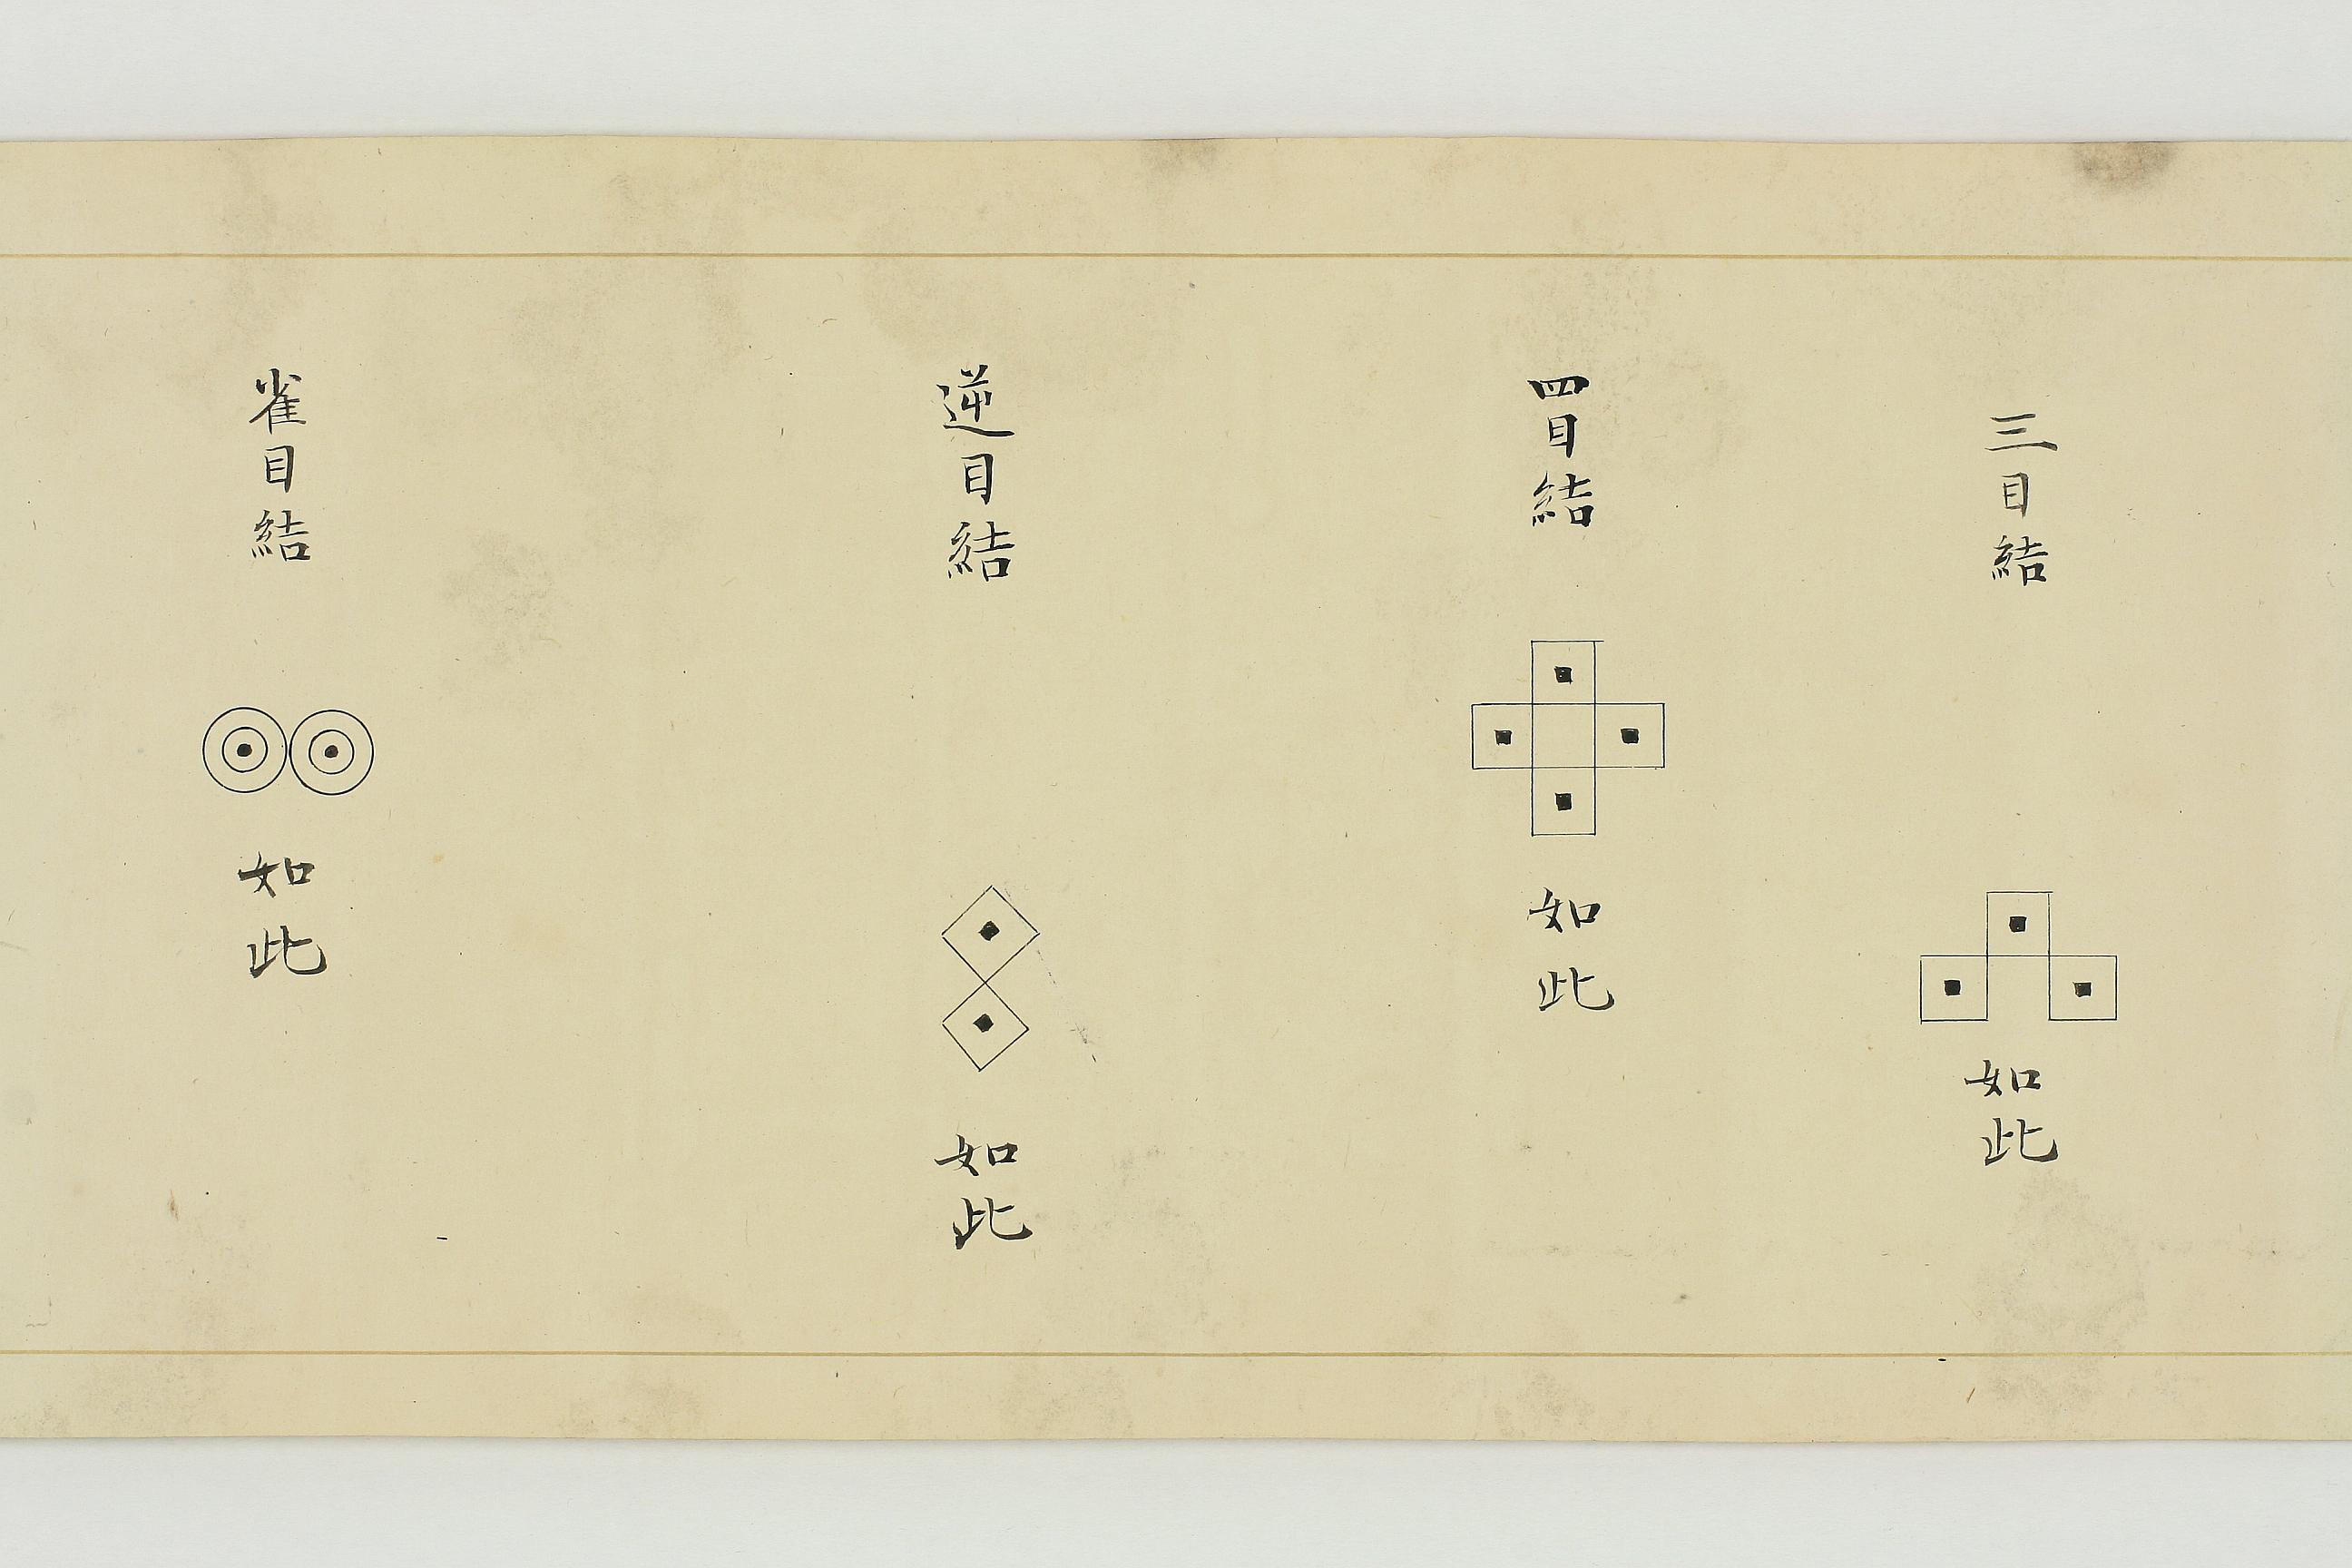 三目結
如此
四目結
如此
逆目結
如此
雀目結
如此